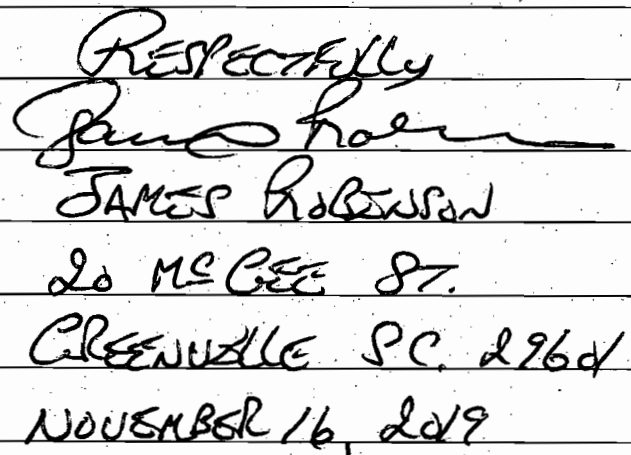 RESPECTFULLY
James Robinson
JAMES ROBINSON
20 McGEE ST.
GREENVILLE S.C. 29601
NOVEMBER 16, 2019